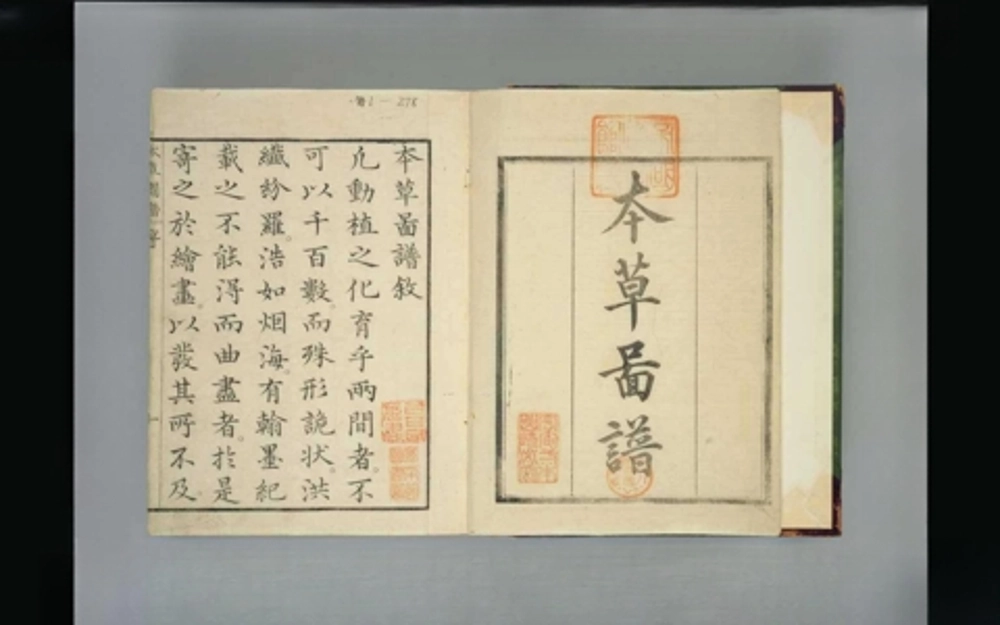 本草啚譜
本草啚譜敘
凢動植之化育乎兩間者不
可以千百數而殊形詭状洪
纖紛羅浩如烟海有翰墨紀
載之不能淂而曲盡者扵是
寄之於繪畫以𤼵其所不及